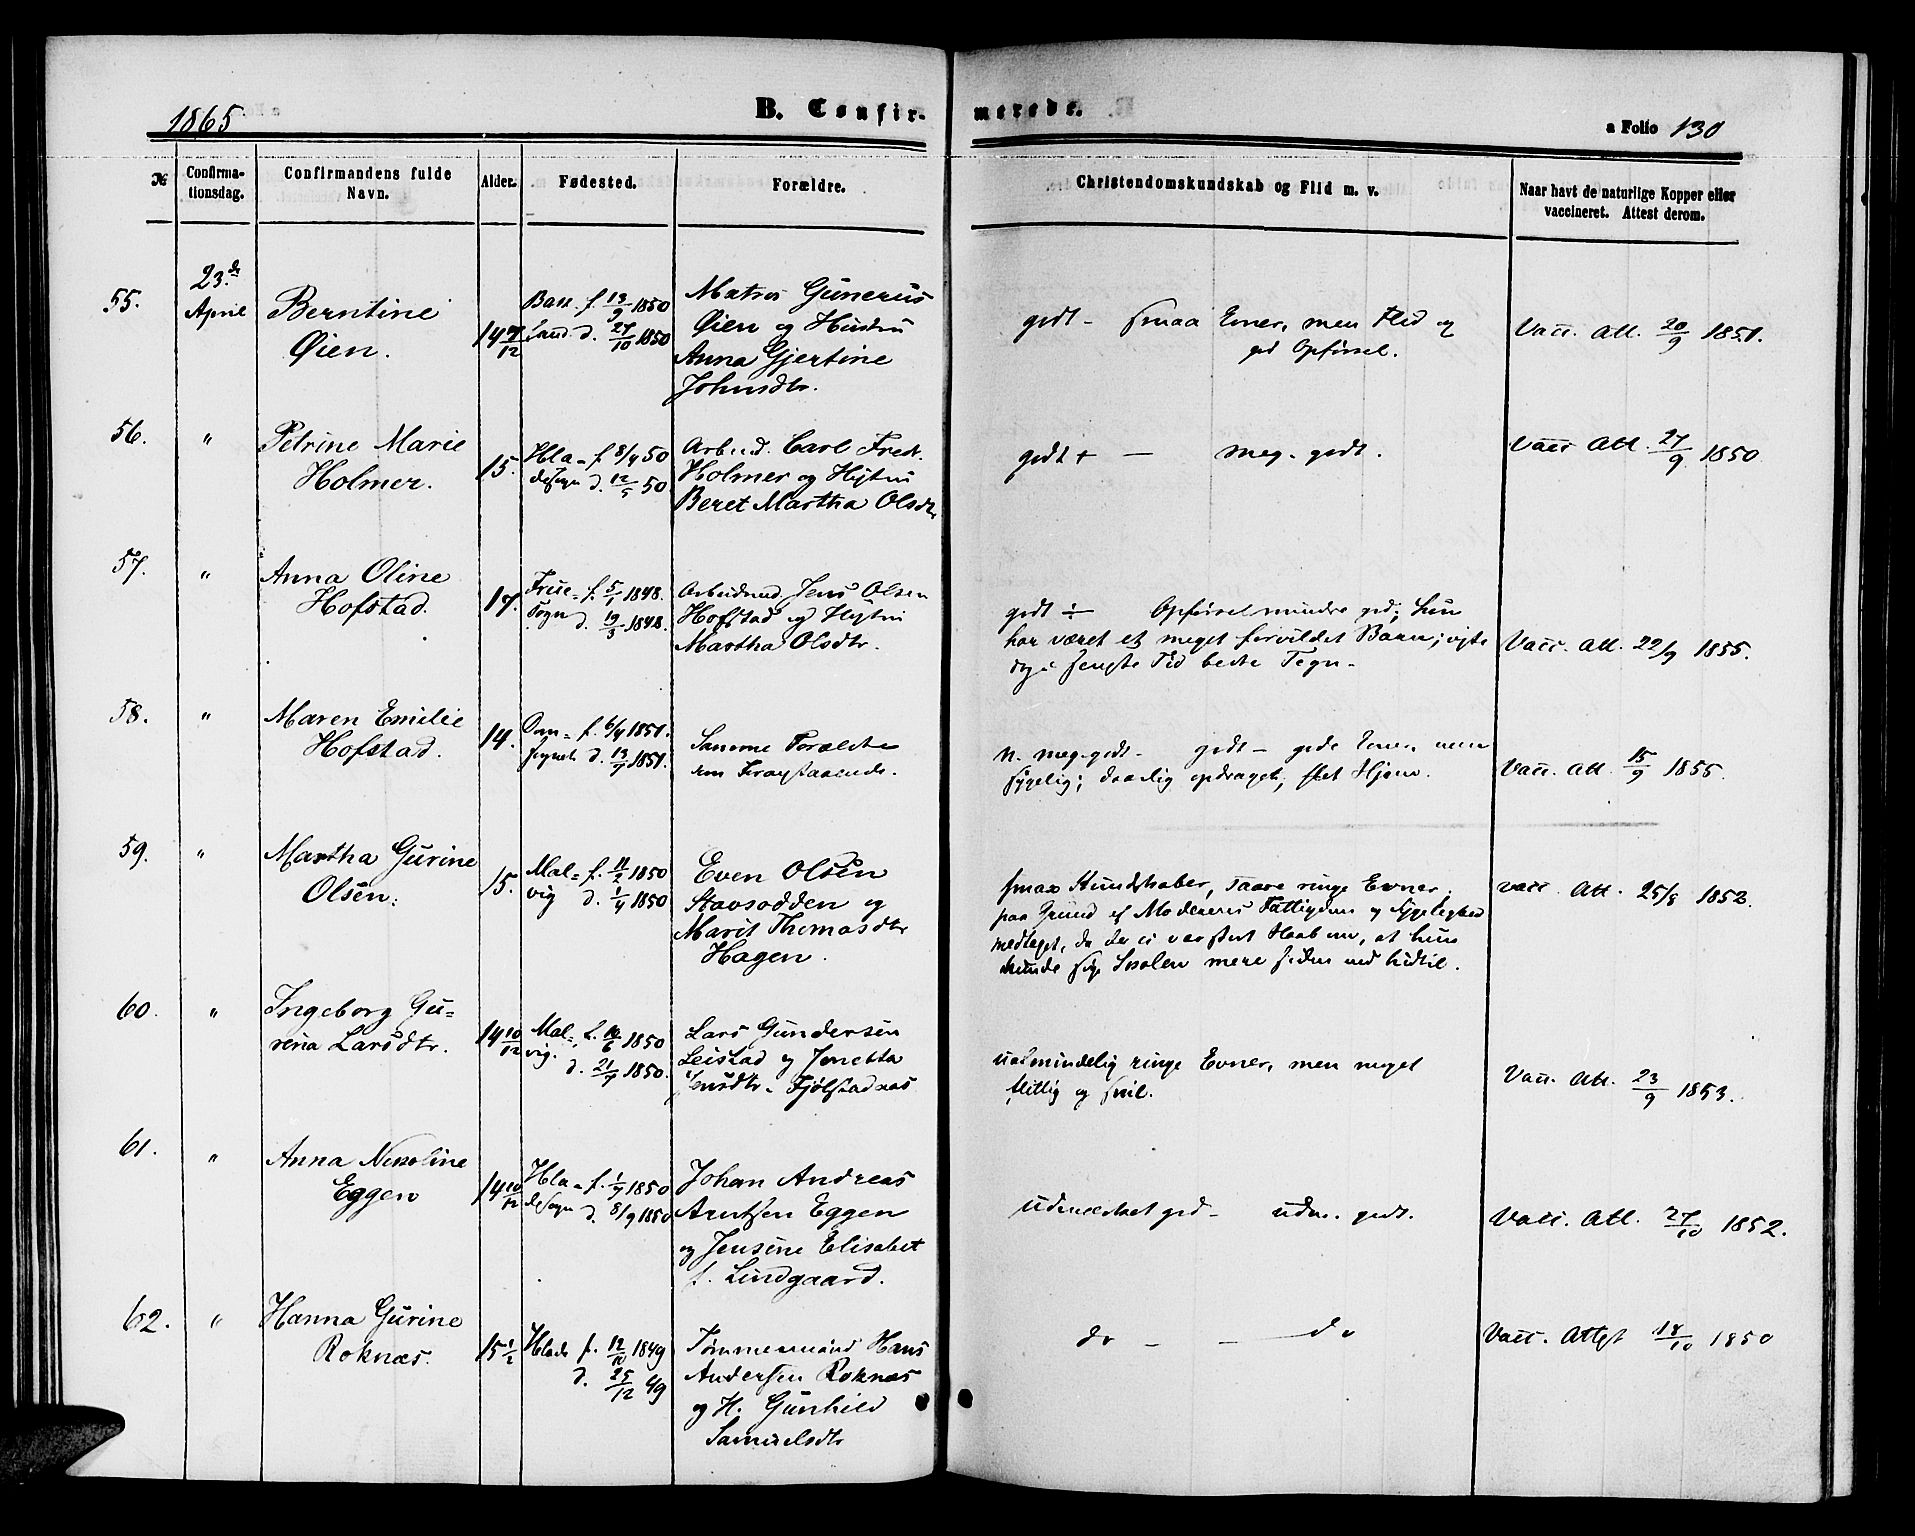 1865
B. Confirmerede.
a Folio 130
№
Confirmationsdag.
Confirmandens fulde Navn.
Alder.
Fødested.
Forældre.
Christendomskundskab og Flid m. v.
Naar havt de naturlige Kopper eller vaccineret. Attest derom.
55.
23.de April
Berntine
Øien.
14 7/12
f. 13/9 1850
d. 27/10 1850
Matros Gunerius
Øien og Hustru
Anna Gjertine
Johnsdtr.
godt - smaa Evner, men Flid og
god Opførsel.
Vacc. Att. 20/9 1851.
56.
"
Petrine Marie
Holmer.
15.
Hla= f. 8/4 50
desogn d. 12/5 50
Arbmd. Carl Fredr.
Holmer og Hustru
Beret Martha Olsdtr
godt + — meg. godt.
Vacc Att. 27/9 1850
57.
"
Anna Oline
Hofstad.
17.
Frue= f. 5/1 1848.
Sogn d. 19/3 1848.
Arbeidsmd. Jens Olsen
Hofstad og Hustru
Martha Olsdtr.
godt ÷ Opførsel mindre god; hun
har været et meget forvildet Barn; viste
dog i sengste Tid bedre Tegn.
Vacc. Att. 22/9 1855.
58.
"
Maren Emilie
Hofstad.
14.
Dom= f. 6/4 1851.
sognet d. 13/7 1851.
Samme Forældre
som Foregaaende.
n. meg. godt - godt - gode Evner men
sygelig; daarlig opdraget, slet Hjem.
Vacc. Att. 15/9 1855
59.
"
Martha Gurine
Olsen.
15.
Mal= f. 11/2 1850
vig d. 1/4 1850
Even Olsen
Stavsodden og
Marit Thomasdtr
Hagen.
smaa Kundskaber, saare ringe Evner;
paa Grund af Moderens Fattigdom og Sygelighed
medtaget, da der ei var stort Haab om, at hun
kunde søge Skolen mere siden end hidtil.
Vacc. Att. 25/8 1852.
60.
"
Ingeborg Gu=
rina Larsdtr.
14 10/12
Mal= f. 10/6 1850
vig. d. 21/7 1850.
Lars Gundersen
Leistad og Jonetta
Jensdtr. Fjølstadnæs
ualmindelig ringe Evner, men meget
flittig og snil.
Vacc. Att. 23/9 1853.
61.
"
Anna Nikoline
Eggen
14 10/12
Hla= f. 1/7 1850
desogn d. 8/9 1850
Johan Andreas
Arntsen Eggen
og Jensine Elisabet
f. Lindgaard.
udmærket god - udm. godt.
Vacc. Att. 27/10 1852.
62.
"
Hanna Gurine
Roknæs.
15 1/2
Hlade f. 12/10 1849
d. 25/12 49
Tømmermand Hans
Andersen Roknæs
og H. Gunhild
Samuelsdtr
do — — do
Vacc. Attest 18/10 1850